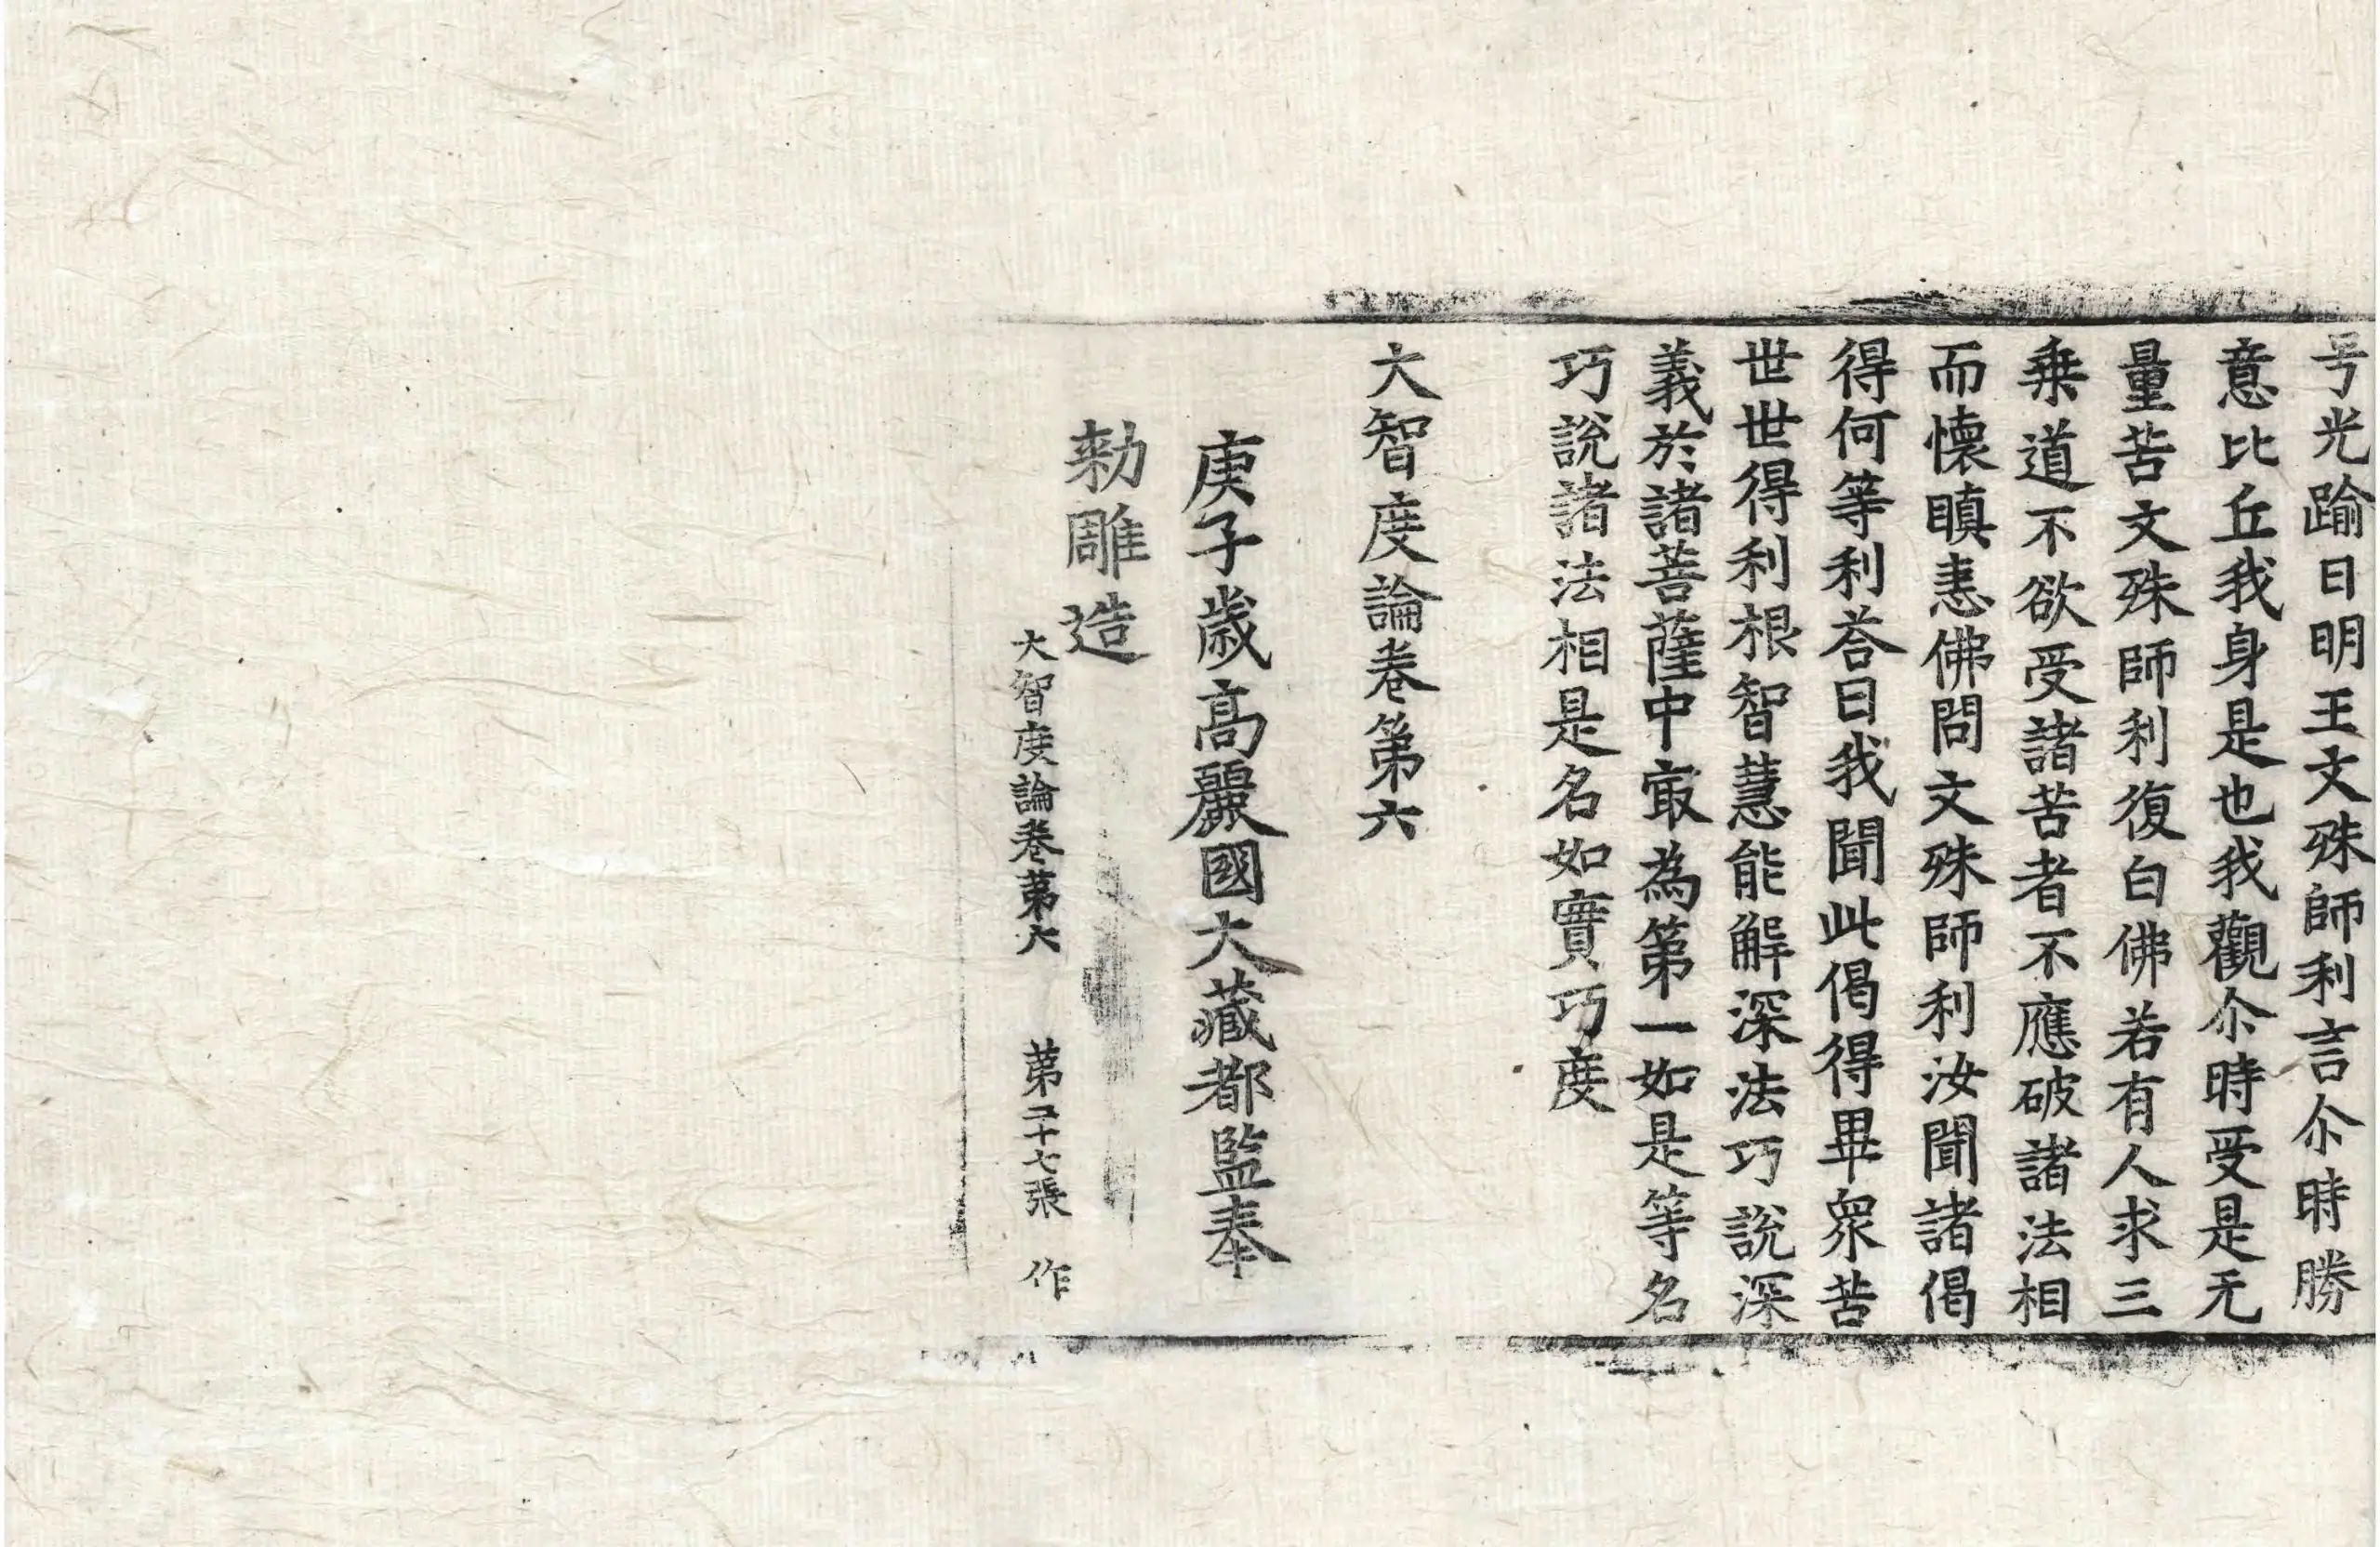 号光踰日明王文殊師利言尒時勝
意比丘我身是也我觀尒時受是无
量苦文殊師利復白佛若有人求三
乗道不欲受諸苦者不應破諸法相
而懷瞋恚佛問文殊師利汝聞諸偈
得何等利荅曰我聞此偈得畢衆苦
世世得利根智慧能解深法巧說深
義於諸菩薩中㝡為第一如是等名
巧說諸法相是名如實巧度
大智度論卷第六
庚子歲高麗國大藏都監奉
勅雕造
大智度論卷苐六 苐二十七張 作